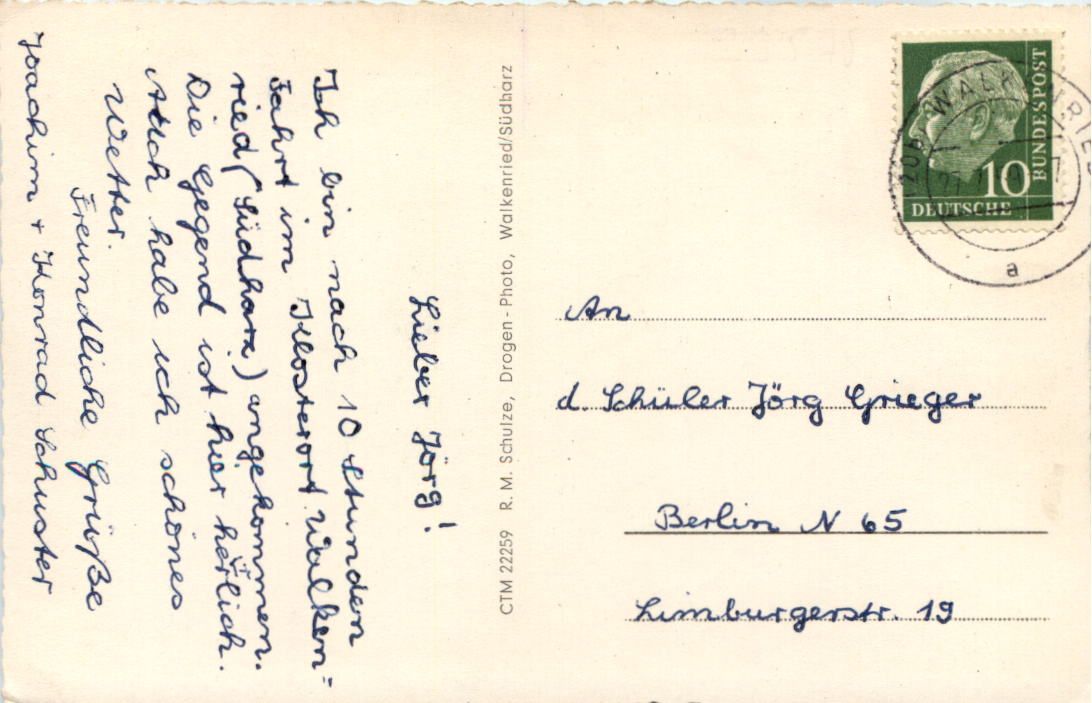 Lieber Jörg!
Ich bin nach 10 Stunden
Fahrt im Klosterort Walken=
ried (Südharz) angekommen.
Die Gegend ist hier herrlich.
Auch habe ich schönes
Wetter.
Freundliche Grüße
Joachim + Konrad Schuster
CTM 22259 R. M. Schulze, Drogen-Photo, Walkenried/Südharz
BUNDESPOST
10
DEUTSCHE
WALKENRIED
a
An
d. Schüler Jörg Grieger
Berlin N 65
Limburgerstr. 19